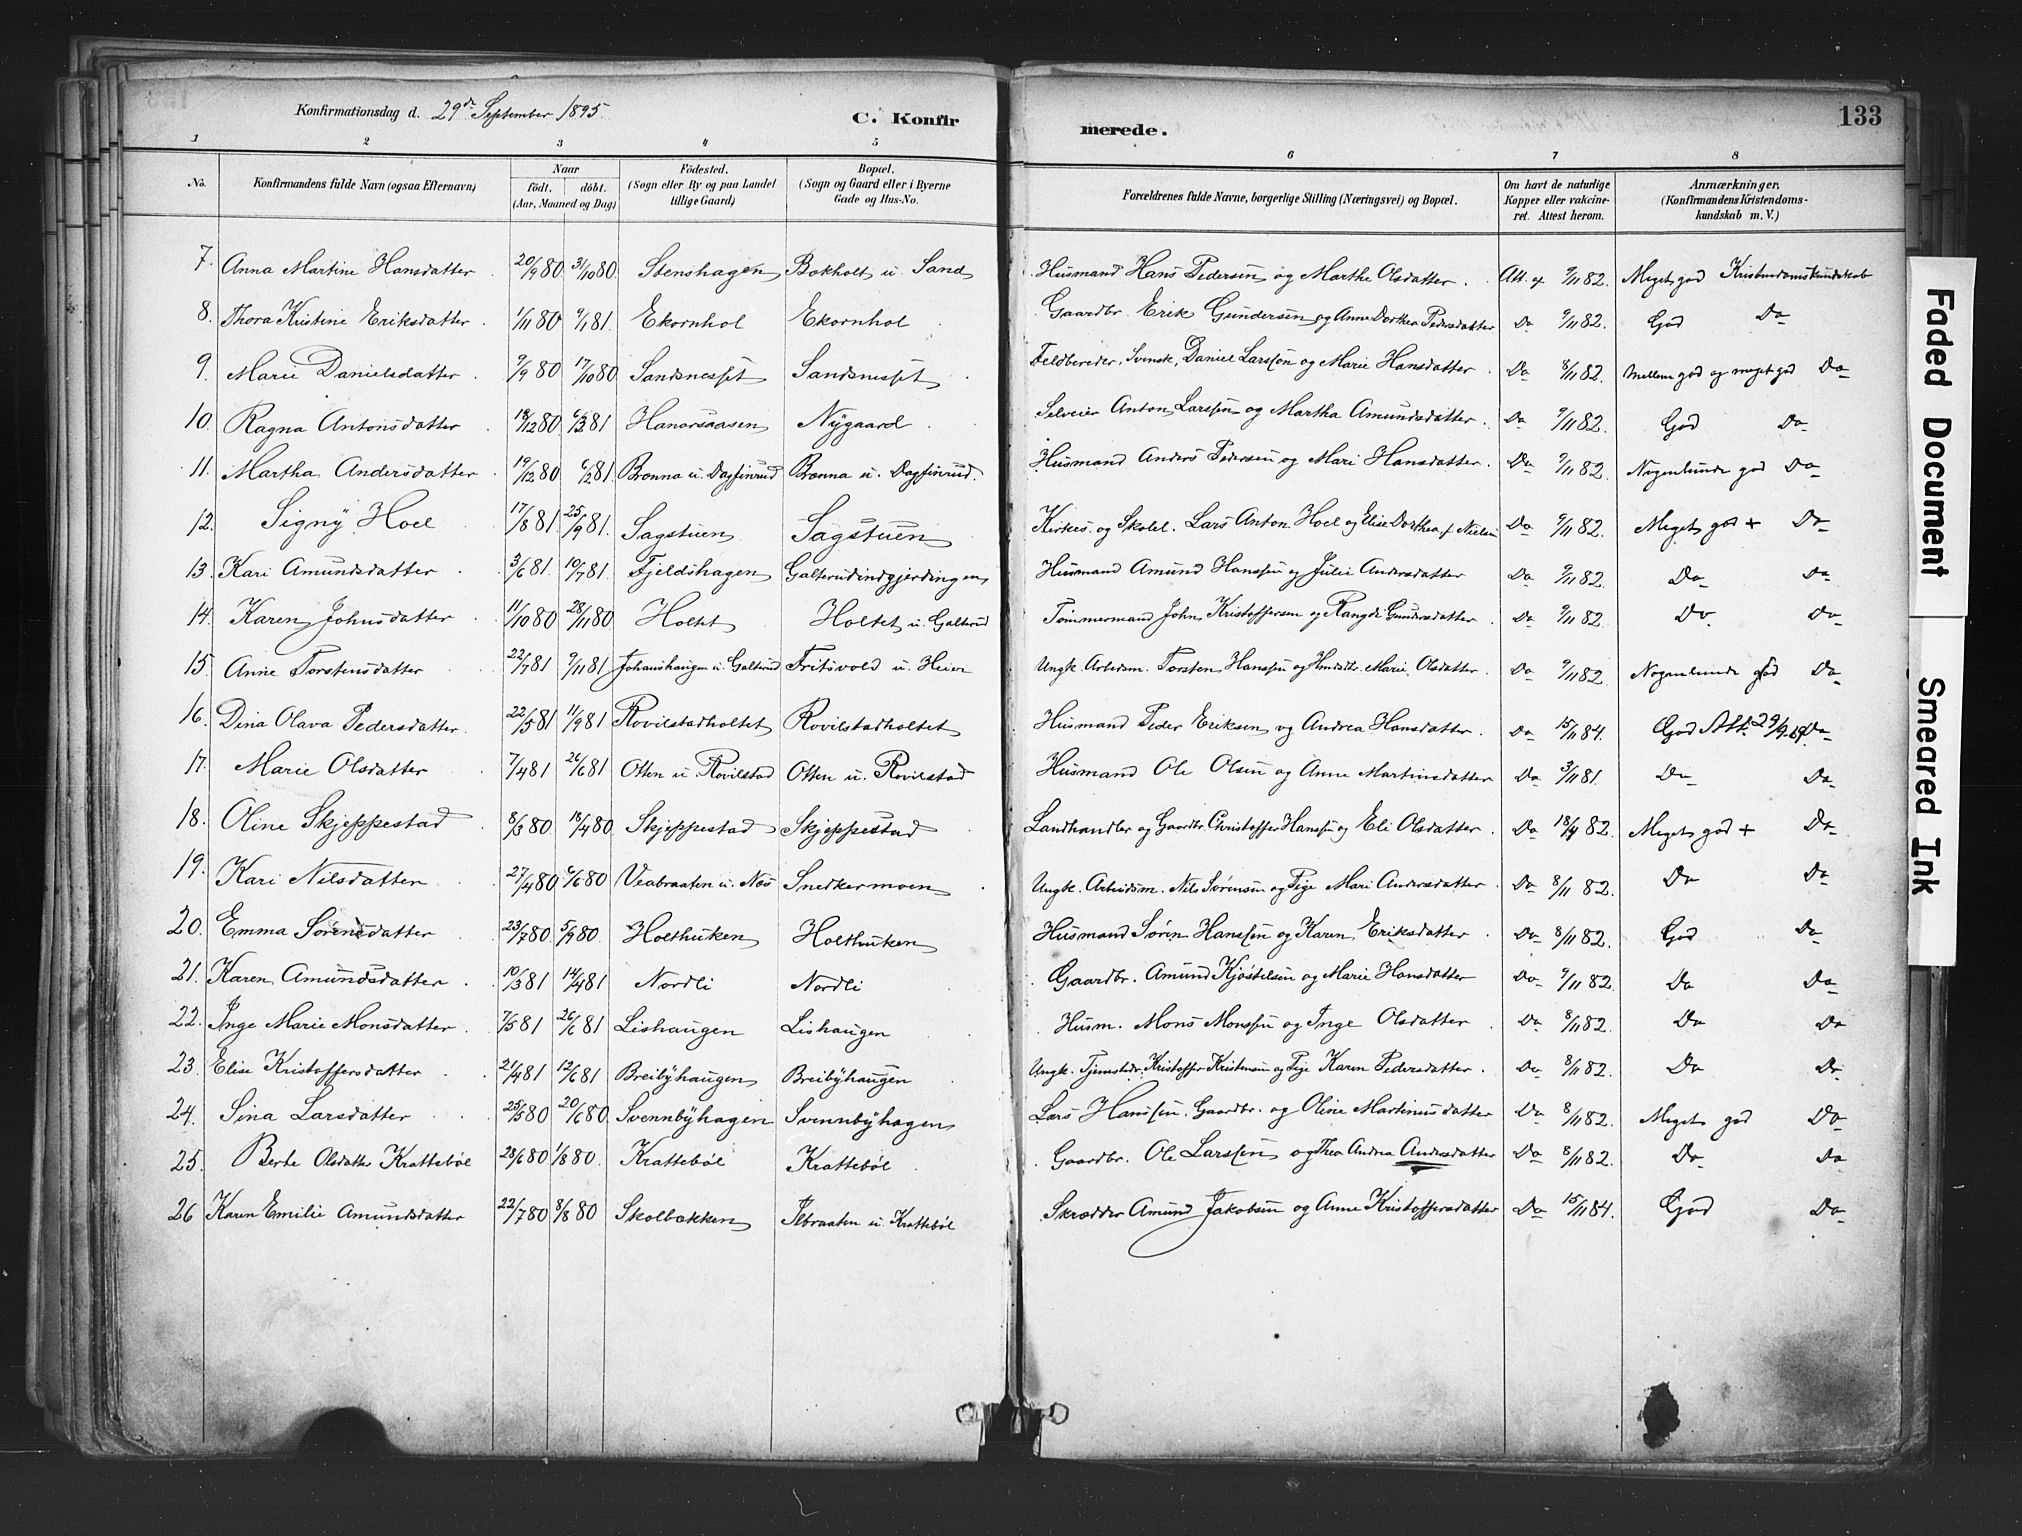 Konfirmationsdag d. 29de September 1895.
C. Konfirmerede.
133
1 2 3 4 5 6 7 8
No.
Konfirmandens fulde Navn (ogsaa Efternavn)
Naar
födt. döbt.
(Aar, Maaned og Dag)
Födested.
(Sogn eller By og paa Landet
tillige Gaard)
Bopæl.
(Sogn og Gaard eller i Byerne
Gade og Hus-No.
Forældrenes fulde Navne, borgerlige Stilling (Næringsvei) og Bopæl.
Om havt de naturlige
Kopper eller vakcine-
ret. Attest herom.
Anmærkninger.
(Konfirmandens Kristendoms-
kundskab m. V.)
7. Anna Martine Hansdatter 20/9 80 31/10 80 Stenshagen Bokholt u. Sand Husmand Hans Pedersen og Marthe Olsdatter. Att. af 9/11 82. Meget god Kristendomskundskab
8. Thora Kristine Eriksdatter. 1/11 80 9/1 81. Ekornhol Ekornhol Gaardbr. Erik Gundersen og Anne Dorthea Pedersdatter Do 9/11 82. God Do
9. Marie Danielsdatter 9/9 80 17/10 80 Sandsnesset Sandsnesset Feldbereder, Svensk, Daniel Larssøn og Marie Hansdatter Do 8/11 82. Mellem god og meget god Do
10. Ragna Antonsdatter 18/12 80 6/3 81 Hanorsaasen Nygaard Selveier Anton Larssen og Martha Amundsdatter. Do 9/11 82. God Do
11. Martha Andersdatter 19/12 80 6/2 81 Brønna u. Dagfinrud Brønna u. Dagfinrud. Husmand Anders Pedersen og Mari Hansdatter. Do 9/11 82. Nogenlunde god Do
12. Signy Hoel 17/8 81. 25/9 81. Sagstuen Sagstuen Kirkes. og Skolel. Lars Anton Hoel og Elise Dorthea f. Nielsen Do 9/11 82. Meget god + Do
13. Kari Amundsdatter 3/6 81. 10/7 81. Fjeldshagen Galterudindgjerdingen Husmand Amund Hanssen og Julie Andersdatter Do 9/11 82. Do Do
14. Karen Johnsdatter 11/10 80 28/11 80 Holtet Holtet u. Galterud Tømmermand John Kristoffersen og Rangdi Gundersdatter Do 9/11 82. Do Do
15. Anne Torstensdatter 22/7 81 9/11 81 Johanshaugen u. Galterud Fritsvold u. Heier Ungk. Arbeidsm. Torsten Hanssen og Marie Olsdatter. Do 9/11 82. Nogenlunde god Do
16. Dina Olava Pedersdatter. 22/5 81 11/9 81 Rovilstadholtet Rovilstadholtet Husmand Peder Eriksen og Andrea Hansdatter. Do 15/11 84. God Att. 29/9. Do
17. Marie Olsdatter 7/4 81 26/6 81 Otten u. Rovilstad Otten u. Rovilstad Husmand Ole Olsen og Anne Martinsdatter Do 3/11 81. Do Do
18. Oline Skjeppestad 8/3 80. 18/4 80. Skjeppestad Skjeppestad Landhandler og Gaardbr. Christoffer Hanssen og Eli Olsdatter. Do 18/4 82. Meget god + Do
19. Kari Nilsdatter 27/4 80 6/6 80 Veabraaten u. Næs Snedkermoen Ungk. Arbeidsm. Nils Sørensen og Pige Mari Andersdatter Do 8/11 82. Do Do
20. Emma Sørensdatter 23/7 80. 5/9 80. Holthuken Holthuken Husmand Søren Hanssen og Karen Eriksdatter. Do 8/11 82. God Do
21. Karen Amundsdatter 10/3 81 14/4 81 Nordli Nordli Gaardbr. Amund Kjøstelsen og Marie Hansdatter Do 9/11 82. Do Do
22. Inge Marie Monsdatter. 7/5 81 26/6 81 Lishaugen Lishaugen Husm. Mons Monssen og Inge Olsdatter Do 8/11 82. Do Do
23. Elise Kristoffersdatter 21/4 81 12/6 81 Breibyhaugen Breibyhaugen Ungk. Tjenstedr. Kristoffer Kristensen og Pige Karen Pedersdatter. Do 8/11 82. Do Do
24. Sina Larsdatter 25/5 80 20/6 80. Svennbyhagen Svennbyhagen Lars Hanssen. Gaardbr. og Oline Martinusdatter Do 8/11 82. Meget god Do
25. Berte Olsdatter Krattebøl 28/6 80 1/8 80. Krattebøl Krattebøl Gaardbr. Ole Larssen og Thea Andrea Andersdatter Do 8/11 82. Do Do
26 Karen Emilie Amundsdatter 22/7 80 8/8 80 Skolbækken Ilbraaten u. Krattebøl Skrædder Amund Jakobsen og Anne Kristoffersdatter Do 15/11 84. God Do
Faded Document
Smeared Ink